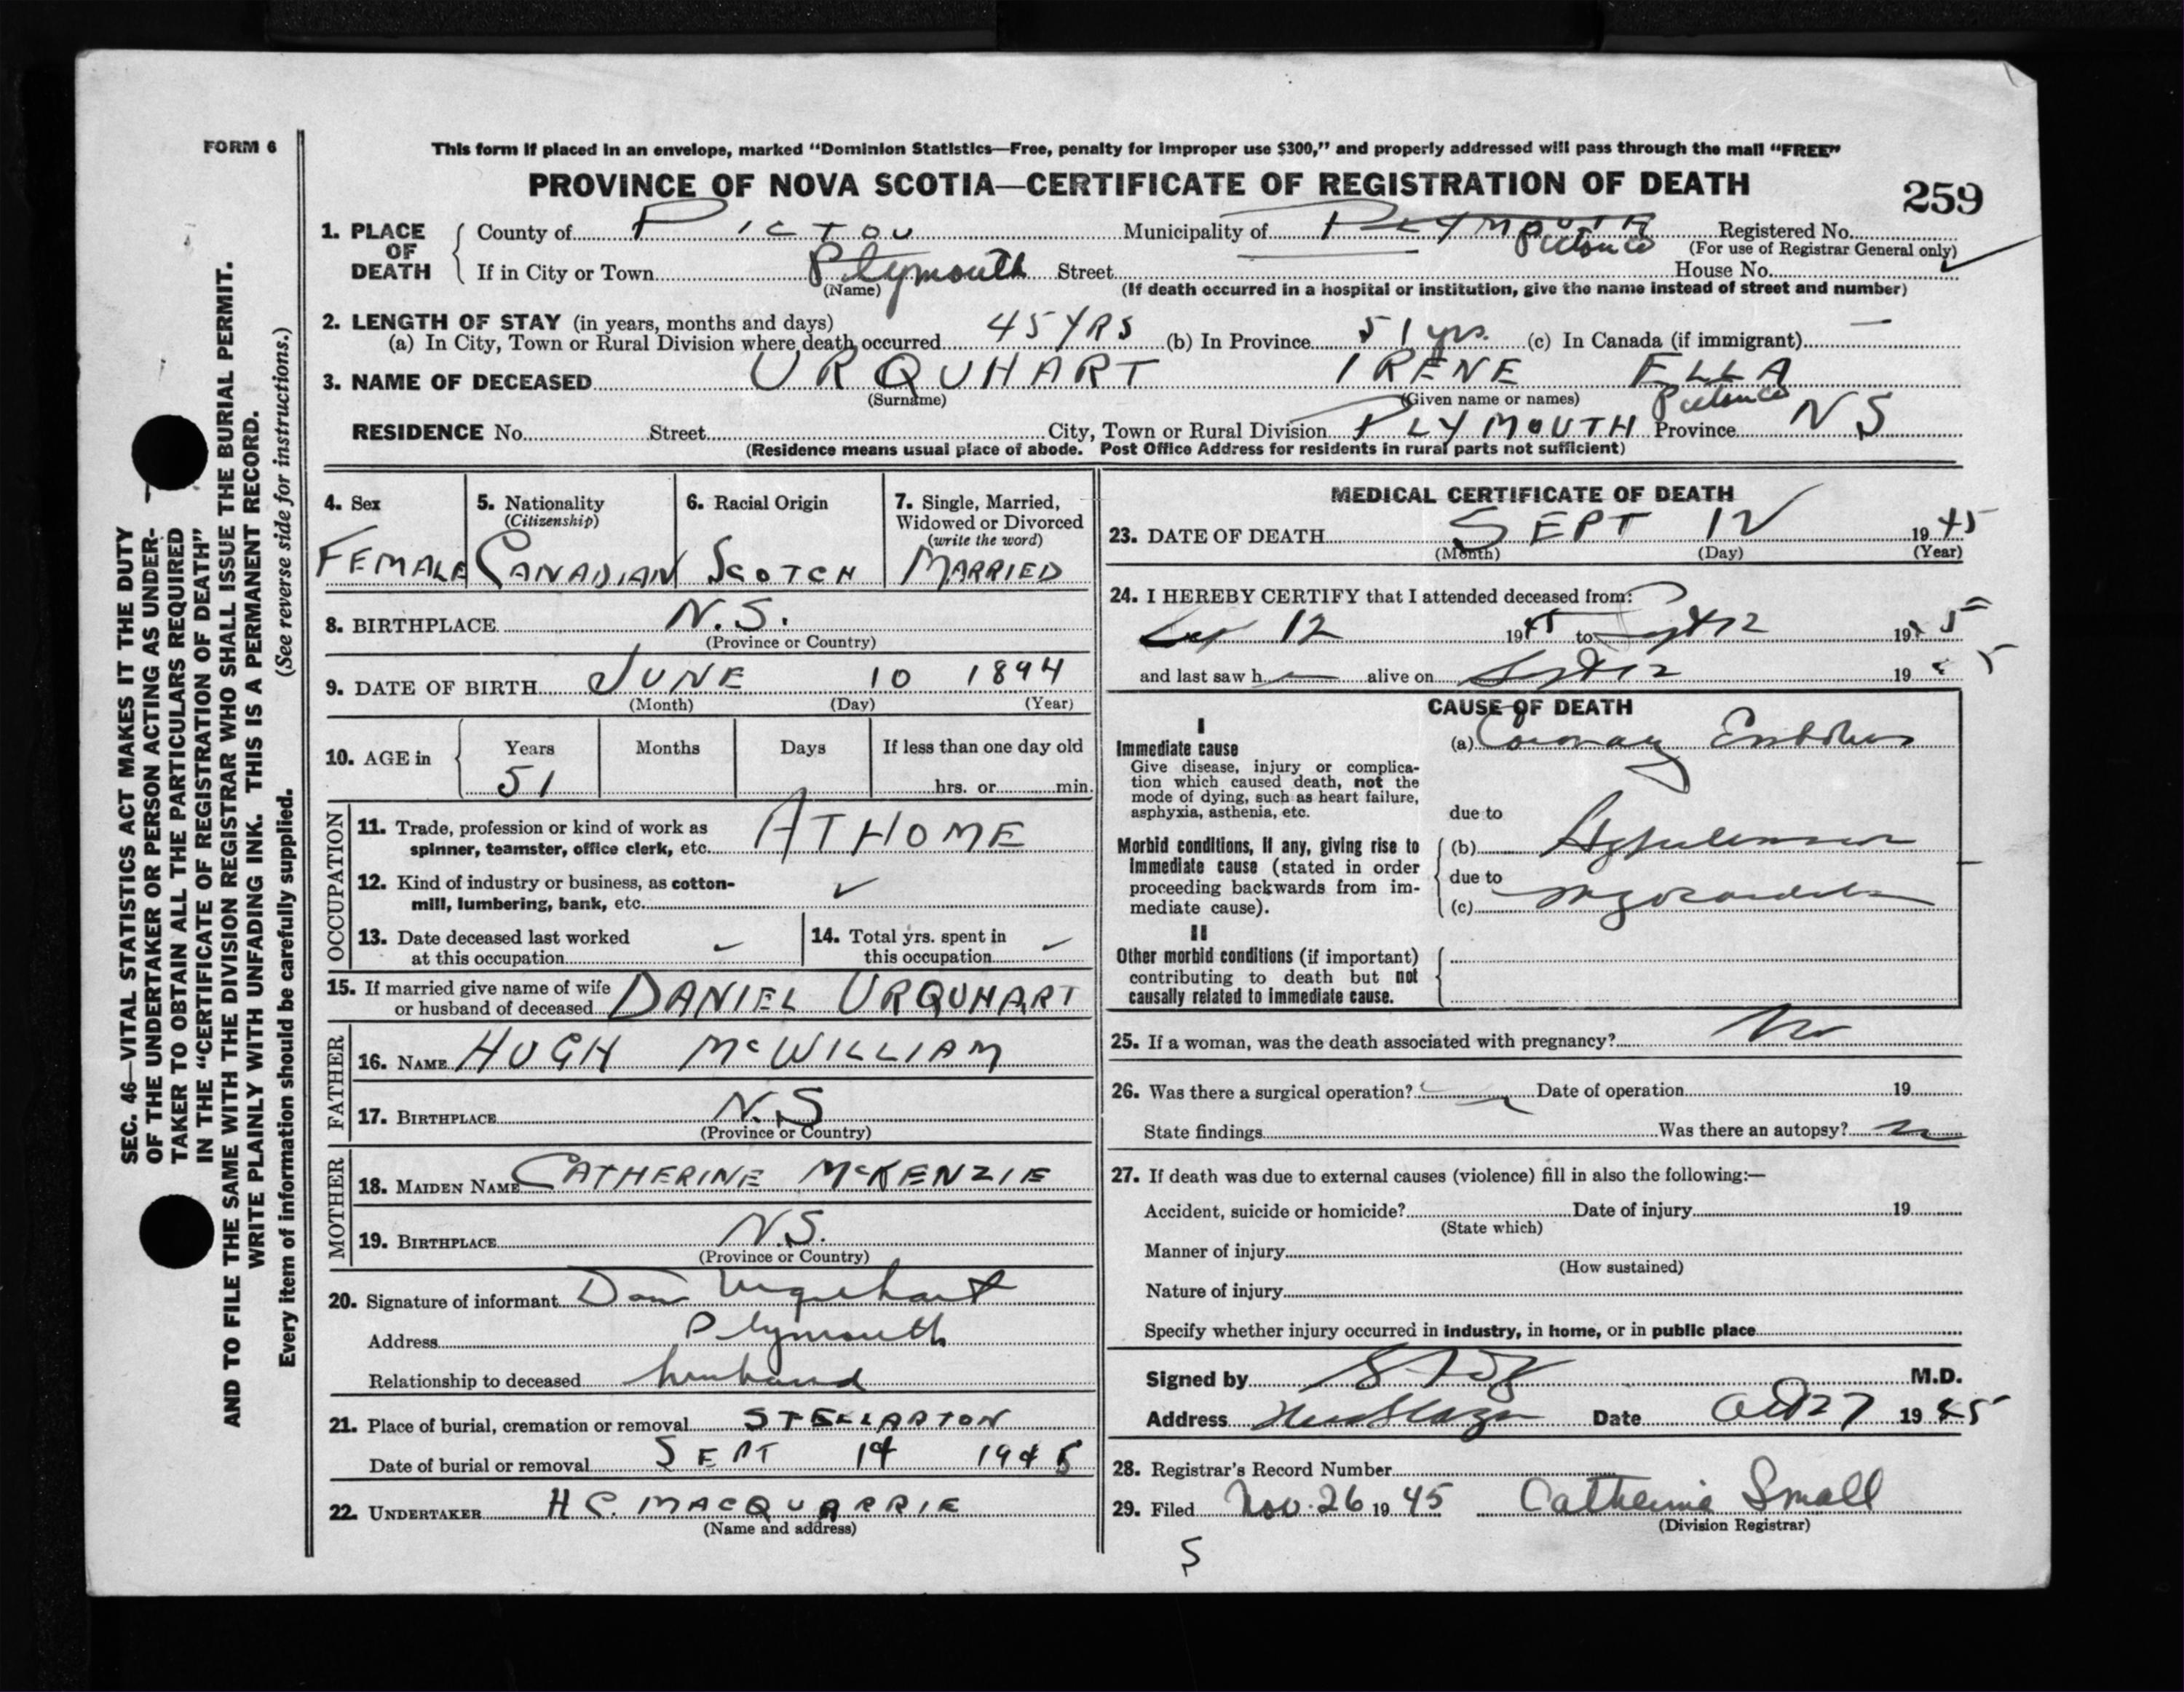 FORM 6
This form if placed in an envelope, marked "Dominion Statistics—Free, penalty for improper use $300," and properly addressed will pass through the mail "FREE"
PROVINCE OF NOVA SCOTIA—CERTIFICATE OF REGISTRATION OF DEATH
259
1. PLACE OF DEATH
County of PICTOU Municipality of PLYMOUTH Pictou Co Registered No.
(For use of Registrar General only)
If in City or Town Plymouth Street House No.
(Name) (If death occurred in a hospital or institution, give the name instead of street and number)
2. LENGTH OF STAY (in years, months and days)
(a) In City, Town or Rural Division where death occurred 45 YRS (b) In Province 51 yrs. (c) In Canada (if immigrant) —
3. NAME OF DECEASED URQUHART IRENE ELLA
(Surname) (Given name or names)
Pictou Co
RESIDENCE No. Street City, Town or Rural Division PLYMOUTH Province NS
(Residence means usual place of abode. Post Office Address for residents in rural parts not sufficient)
4. Sex
FEMALE
5. Nationality
(Citizenship)
CANADIAN
6. Racial Origin
SCOTCH
7. Single, Married,
Widowed or Divorced
(write the word)
MARRIED
8. BIRTHPLACE N.S.
(Province or Country)
9. DATE OF BIRTH JUNE 10 1894
(Month) (Day) (Year)
10. AGE in Years Months Days If less than one day old
51 hrs. or min.
OCCUPATION
11. Trade, profession or kind of work as
spinner, teamster, office clerk, etc. AT HOME
12. Kind of industry or business, as cotton-
mill, lumbering, bank, etc. ✓
13. Date deceased last worked
at this occupation ✓
14. Total yrs. spent in
this occupation ✓
15. If married give name of wife
or husband of deceased DANIEL URQUHART
FATHER
16. NAME HUGH McWILLIAM
17. BIRTHPLACE N.S
(Province or Country)
MOTHER
18. MAIDEN NAME CATHERINE McKENZIE
19. BIRTHPLACE N.S.
(Province or Country)
20. Signature of informant Dan Urquhart
Address Plymouth
Relationship to deceased husband
21. Place of burial, cremation or removal STELLARTON
Date of burial or removal SEPT 14 1945
22. UNDERTAKER H C. MACQUARRIE
(Name and address)
MEDICAL CERTIFICATE OF DEATH
23. DATE OF DEATH SEPT 12 1945
(Month) (Day) (Year)
24. I HEREBY CERTIFY that I attended deceased from:
Sept 12 1945 to Sept 12 1945
and last saw h alive on Sept 12 1945
CAUSE OF DEATH
I
Immediate cause
Give disease, injury or complica-
tion which caused death, not the
mode of dying, such as heart failure,
asphyxia, asthenia, etc.
(a) Coronary Embolus
due to
Morbid conditions, if any, giving rise to
immediate cause (stated in order
proceeding backwards from im-
mediate cause).
(b) Hypertension
due to
(c) Myocarditis
II
Other morbid conditions (if important)
contributing to death but not
causally related to immediate cause.
25. If a woman, was the death associated with pregnancy? No
26. Was there a surgical operation? Date of operation 19
State findings Was there an autopsy? No
27. If death was due to external causes (violence) fill in also the following:—
Accident, suicide or homicide? Date of injury 19
(State which)
Manner of injury
(How sustained)
Nature of injury
Specify whether injury occurred in industry, in home, or in public place
Signed by M.D.
Address New Glasgow Date Oct 27 1945
28. Registrar's Record Number
29. Filed Nov. 26 1945 Catherine Small
(Division Registrar)
5
SEC. 46—VITAL STATISTICS ACT MAKES IT THE DUTY
OF THE UNDERTAKER OR PERSON ACTING AS UNDER-
TAKER TO OBTAIN ALL THE PARTICULARS REQUIRED
IN THE "CERTIFICATE OF REGISTRATION OF DEATH"
AND TO FILE THE SAME WITH THE DIVISION REGISTRAR WHO SHALL ISSUE THE BURIAL PERMIT.
WRITE PLAINLY WITH UNFADING INK. THIS IS A PERMANENT RECORD.
Every item of information should be carefully supplied. (See reverse side for instructions.)